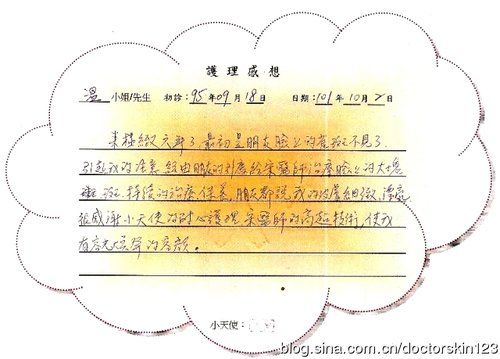 護理感想
溫 小姐/先生 初診：95年09月18日 日期：101年10月2日
美極緻 六年了 最初是朋友臉上的黃斑不見了
引起我的注意 經由朋友的引薦給宋醫師治療臉上的大塊
斑 持續的治療 保養 朋友都說我的皮膚細緻 漂亮
很感謝小天使的耐心護理 宋醫師的高超技術 使我
有容光煥發的容顏。
小天使：
blog.sina.com.cn/doctorskin123